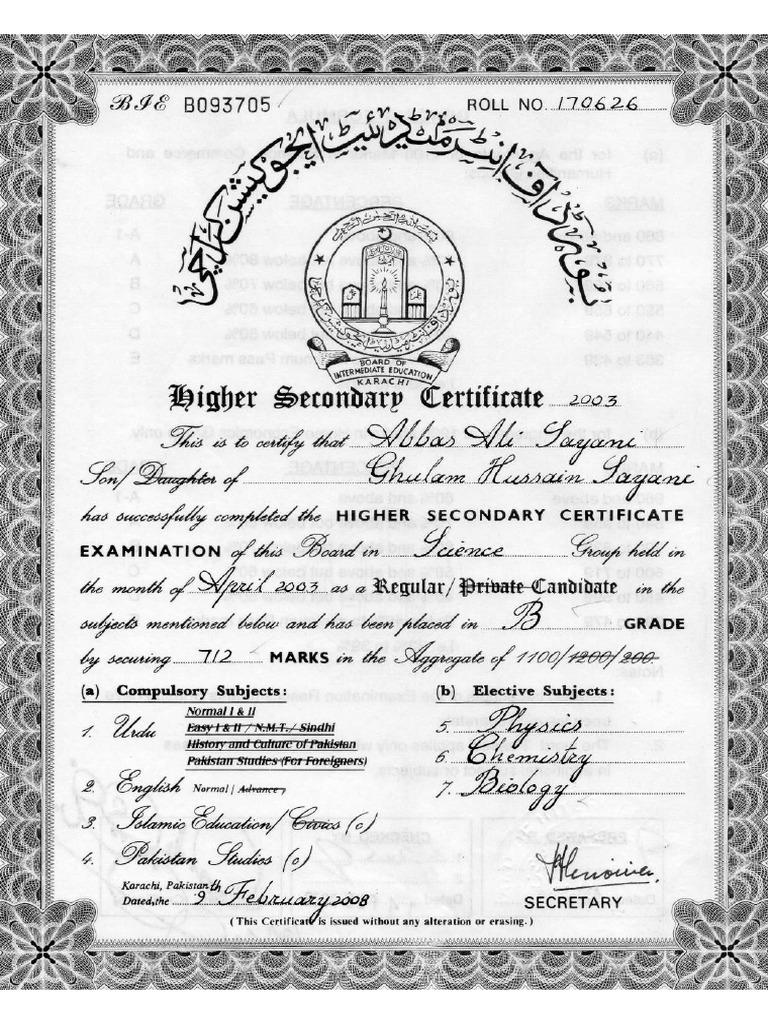 BIE B093705 ROLL NO. 170626
بورڈ آف انٹرمیڈیئیٹ ایجوکیشن کراچی
BOARD OF
INTERMEDIATE EDUCATION
KARACHI
Higher Secondary Certificate 2003
This is to certify that Abbas Ali Sayani
Son/Daughter of Ghulam Hussain Sayani
has successfully completed the HIGHER SECONDARY CERTIFICATE
EXAMINATION of this Board in Science Group held in
the month of April 2003 as a Regular/Private Candidate in the
subjects mentioned below and has been placed in B GRADE
by securing 712 MARKS in the Aggregate of 1100/1200/200.
(a) Compulsory Subjects: (b) Elective Subjects:
Normal I & II
1. Urdu Easy I & II / N.M.T./ Sindhi 5. Physics
History and Culture of Pakistan
Pakistan Studies (For Foreigners) 6. Chemistry
2. English Normal / Advance 7. Biology
3. Islamic Education/Civics (c)
4. Pakistan Studies (c)
Karachi, Pakistan
Dated, the 9th February 2008 SECRETARY
(This Certificate is issued without any alteration or erasing.)